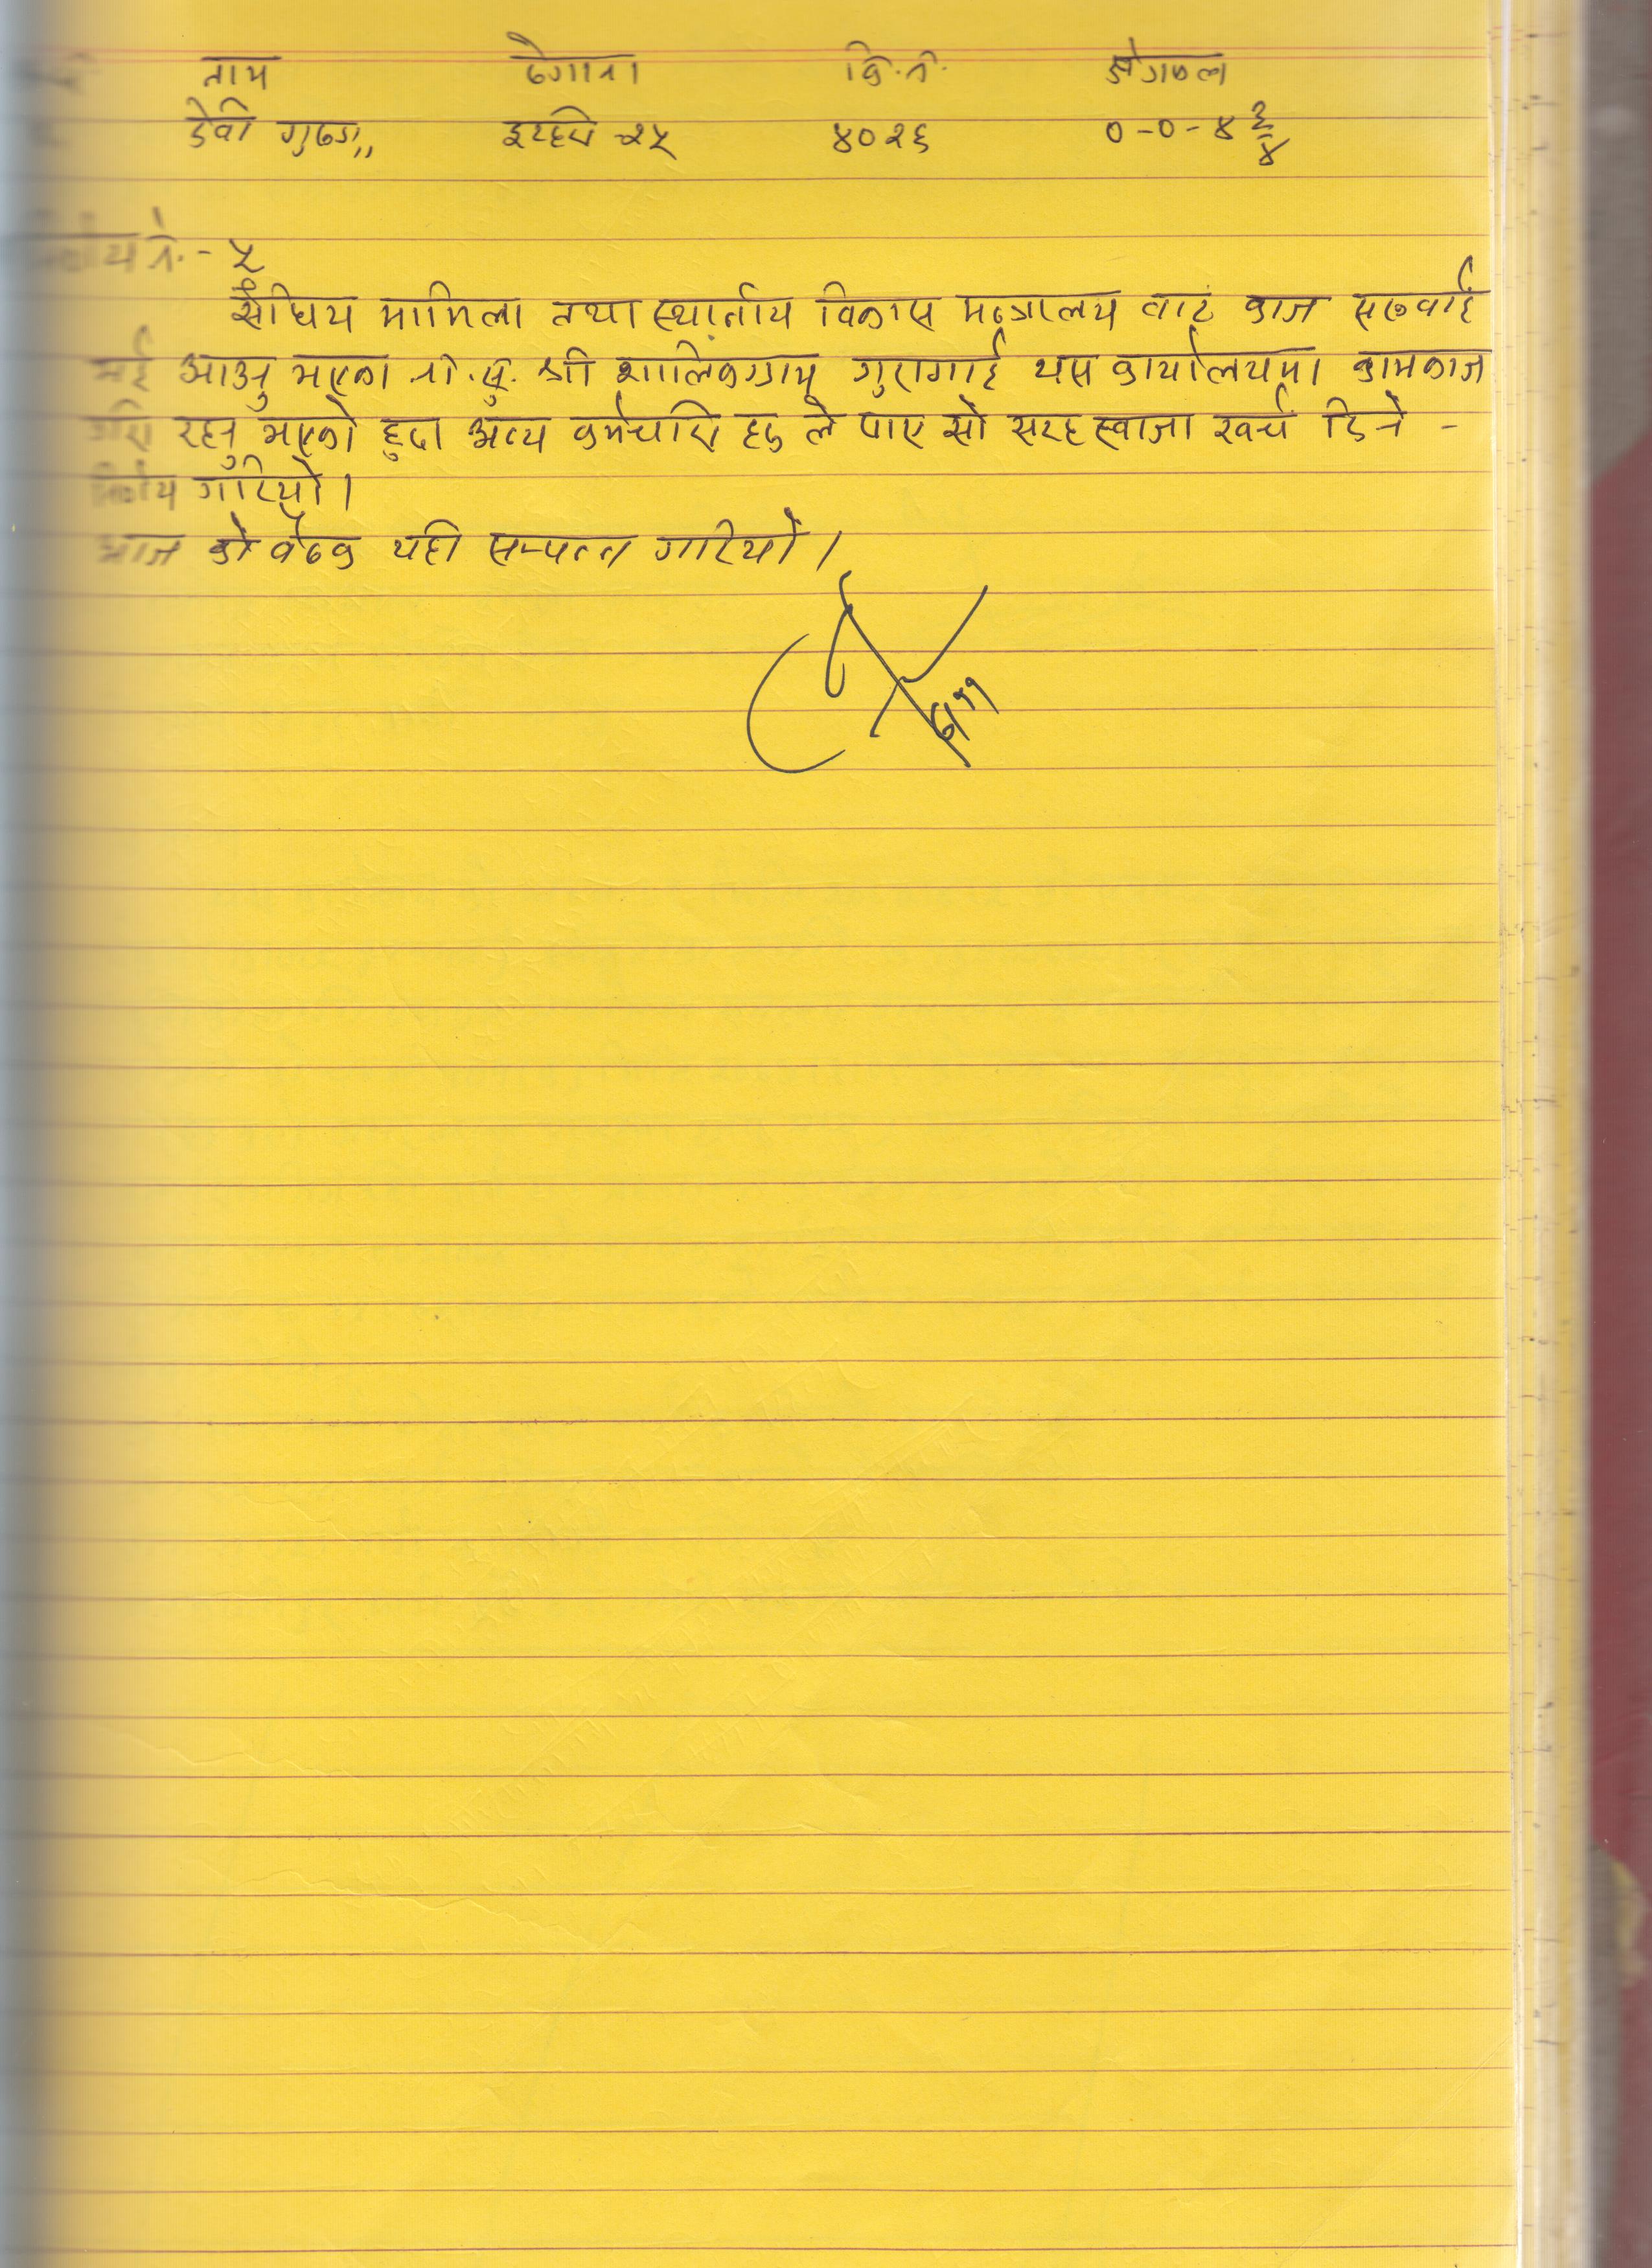 नाम ठेगाना कि.नं. क्षेत्रफल
देवी गुरुङ्ग इटहरी -२५ ४०२६ ०-०-४ ३/४
निर्णय नं. - ५
संघिय मामिला तथा स्थानीय विकास मन्त्रालय वाट काज सरुवाई
भई आउनु भएका ना.सु. श्री शालिकग्राम गुरागाई यस कार्यालयमा कामकाज
गरि रहनु भएको हुदा अन्य कर्मचारी हरु ले पाए सो सरह खाजा खर्च दिने -
निर्णय गरियो।
आज को वैठक यही सम्पन्न गरियो।